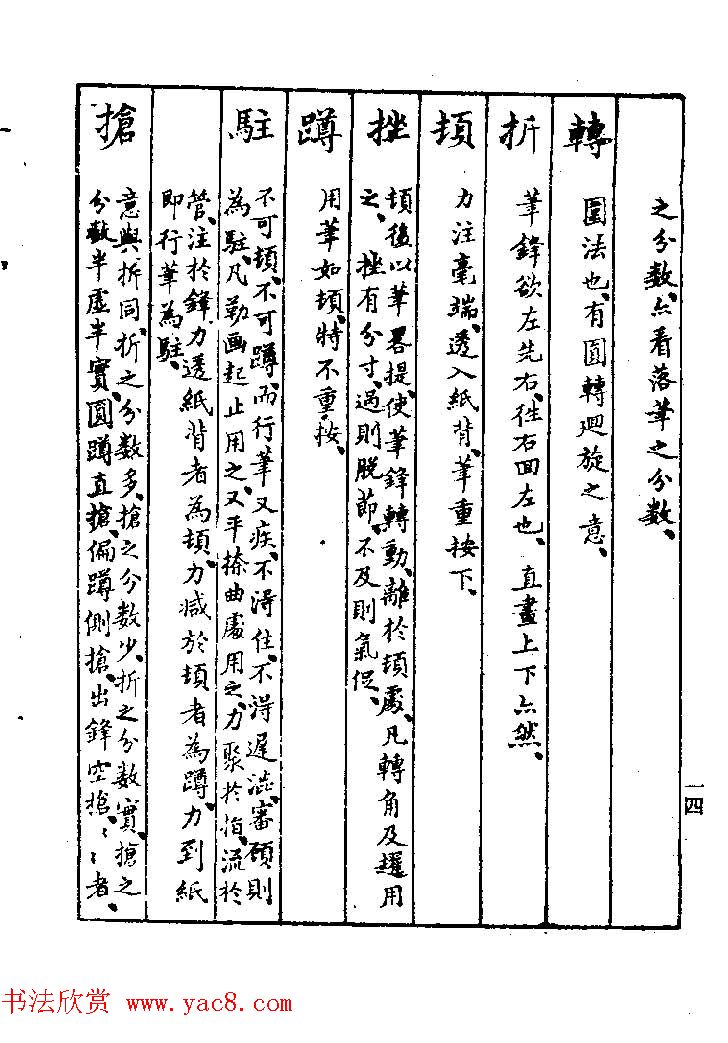 之分數、亦看落筆之分數、
轉 圓法也、有圓轉廻旋之意、
折 筆鋒欲左先右、往右回左也、直畫上下亦然、
頓 力注毫端、透入紙背、筆重按下、
挫 頓後以筆畧提、使筆鋒轉動、離於頓處、凡轉角及趯用
之、挫有分寸、過則脫節、不及則氣促、
蹲 用筆如頓、特不重按、
駐 不可頓、不可蹲、而行筆又疾、不得住、不得遲澁、審顧則
為駐、凡勒画起止用之、又平捺曲處用之、力聚於指、流於
管、注於鋒、力透紙背者為頓、力減於頓者為蹲、力到紙
即行筆為駐、
搶 意與折同、折之分數多、搶之分數少、折之分數實、搶之
分數半虛半實、圓蹲直搶、偏蹲側搶、出鋒空搶、〻〻者、
一四
书法欣赏 www.yac8.com